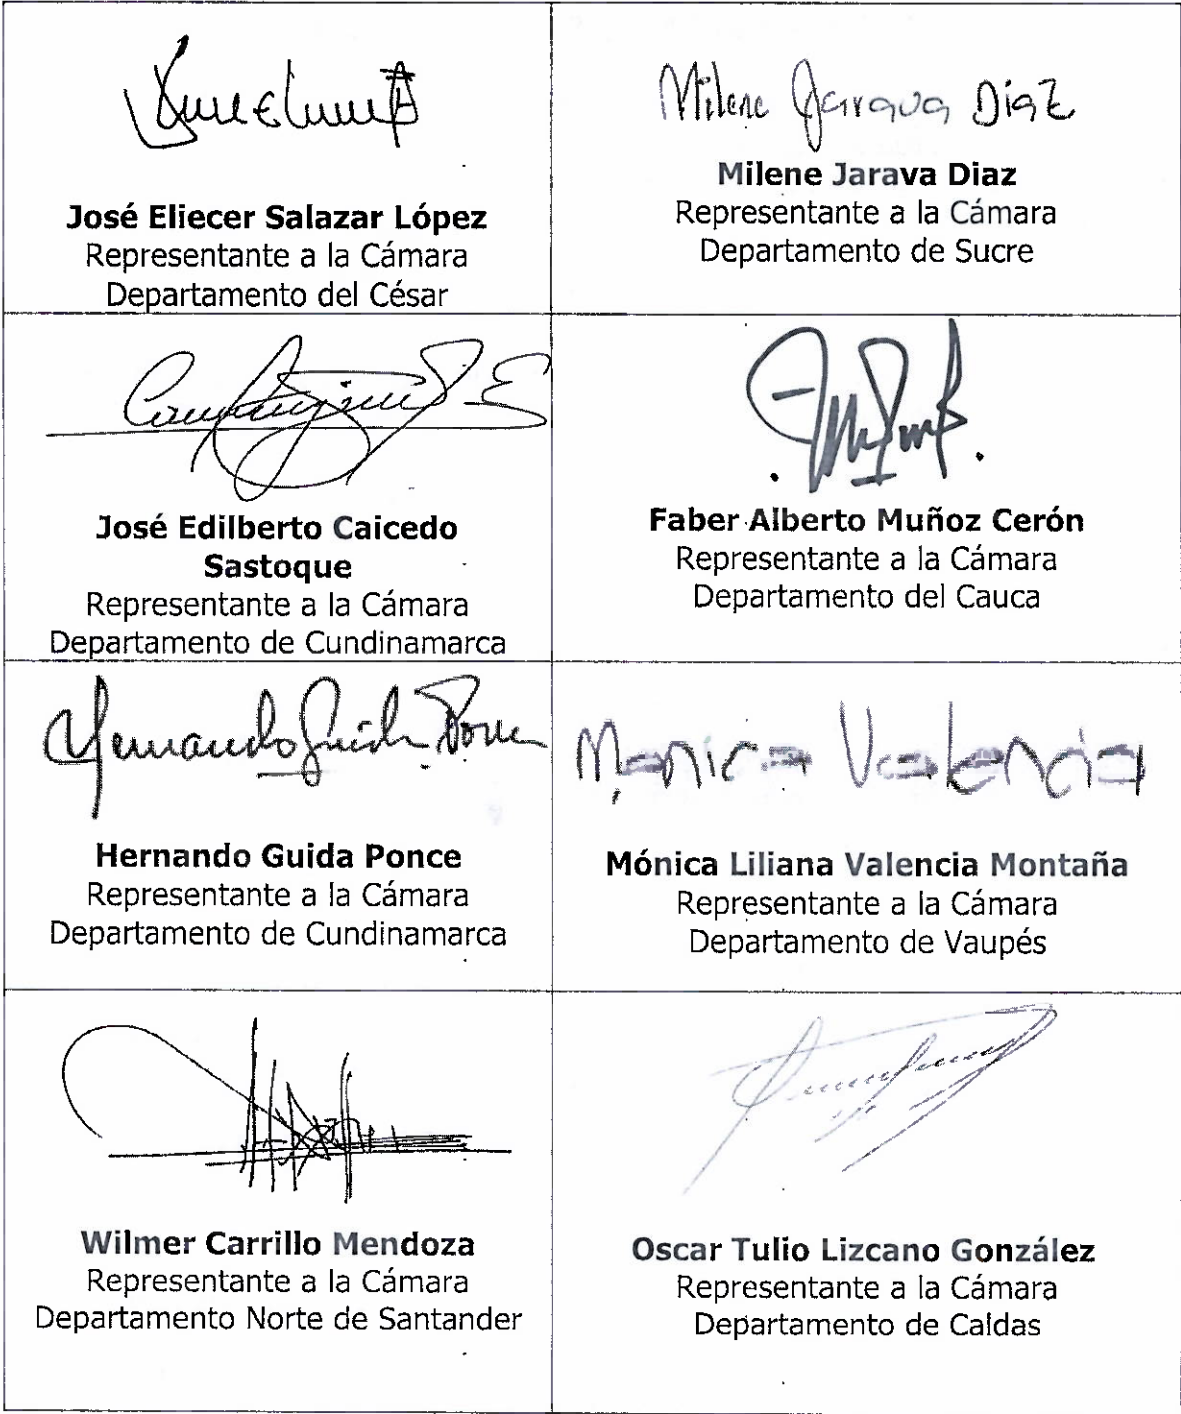 Milene Jarava Diaz
José Eliecer Salazar López
Representante a la Cámara
Departamento del César
Milene Jarava Diaz
Representante a la Cámara
Departamento de Sucre
José Edilberto Caicedo
Sastoque
Representante a la Cámara
Departamento de Cundinamarca
Faber Alberto Muñoz Cerón
Representante a la Cámara
Departamento del Cauca
Hernando Guida Ponce
Hernando Guida Ponce
Representante a la Cámara
Departamento de Cundinamarca
Monica Valencia
Mónica Liliana Valencia Montaña
Representante a la Cámara
Departamento de Vaupés
Wilmer Carrillo Mendoza
Representante a la Cámara
Departamento Norte de Santander
Oscar Tulio Lizcano González
Representante a la Cámara
Departamento de Caldas